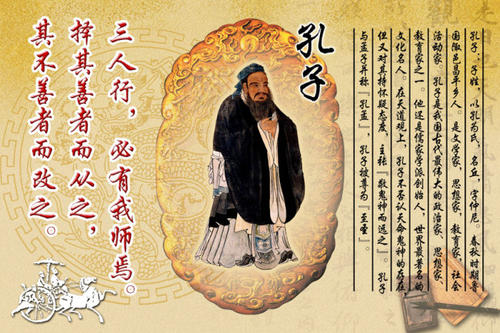 孔子
孔子，子姓，以孔为氏，名丘，字仲尼。春秋时期鲁
国陬邑昌平乡人。是文学家，思想家，教育家，社会
活动家，孔子是我国古代最伟大的政治家，思想家，
教育家之一，他还是儒家学派创始人，世界最著名的
文化名人。在天道观上，孔子不否认天命鬼神的存在
但又对其持怀疑态度，主张『敬鬼神而远之』。孔子
与孟子并称『孔孟』，孔子被尊为『至圣』。
三人行，必有我师焉。
择其善者而从之，
其不善者而改之。